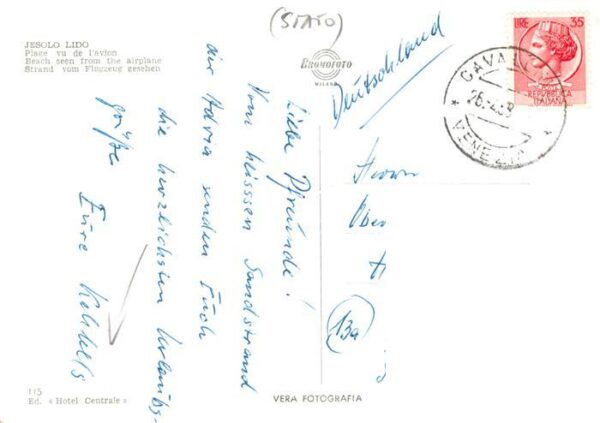 JESOLO LIDO
Plage vu de l'avion
Beach seen from the airplane
Strand vom Flugzeug gesehen
(STATO)
Bromofoto
MILANO
Deutschland
LIRE 35
REPVBBLICA
ITALIANA
CAVALL
VENEZIA
Liebe Pfreunde!
Vom heissen Sandstrand
der Adria senden Euch
die herzlichsten Urlaubs-
grüße
Eure
Herrn
Ober
H
13a
115
Ed. « Hotel Centrale »
VERA FOTOGRAFIA